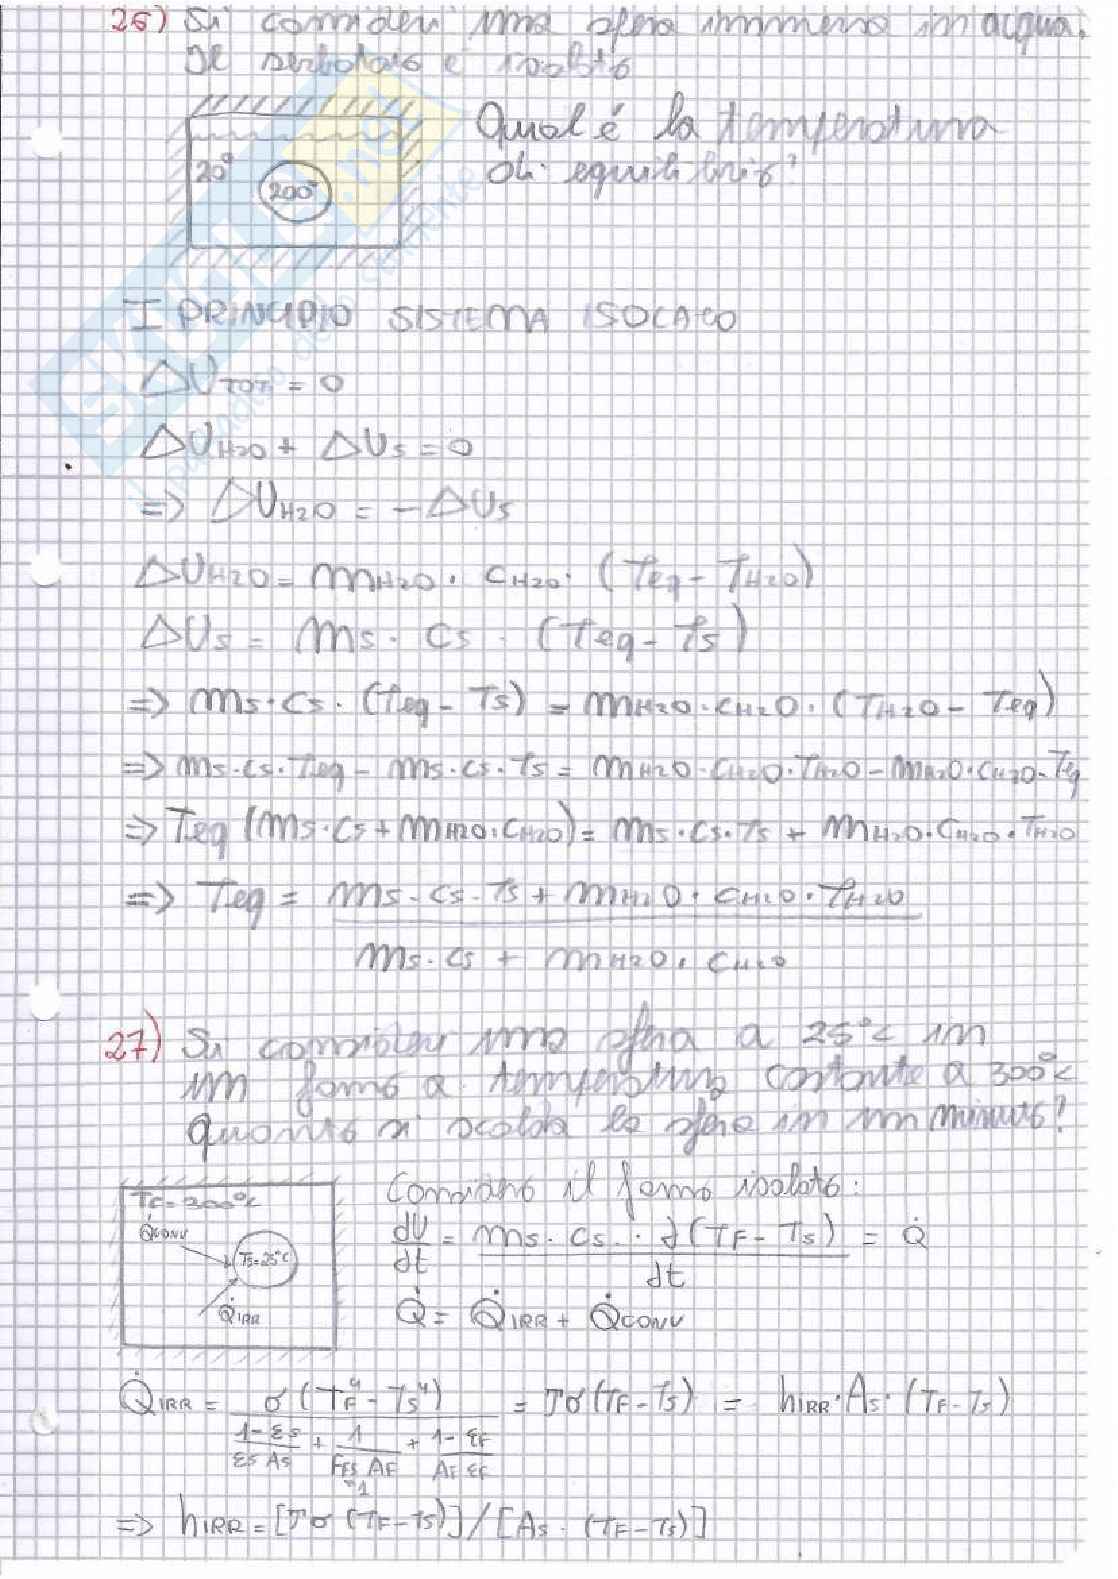 26) Si consideri una sfera immersa in acqua.
Il serbatoio è isolato
Qual è la temperatura
di equilibrio?
20°
200°
I PRINCIPIO SISTEMA ISOLATO
ΔU_TOT = 0
ΔU_H2O + ΔU_S = 0
=> ΔU_H2O = -ΔU_S
ΔU_H2O = m_H2O · c_H2O · (Teq - T_H2O)
ΔU_S = m_S · c_S · (Teq - T_S)
=> m_S · c_S · (Teq - T_S) = m_H2O · c_H2O · (T_H2O - Teq)
=> m_S · c_S · Teq - m_S · c_S · T_S = m_H2O · c_H2O · T_H2O - m_H2O · c_H2O · Teq
=> Teq (m_S · c_S + m_H2O · c_H2O) = m_S · c_S · T_S + m_H2O · c_H2O · T_H2O
=> Teq = m_S · c_S · T_S + m_H2O · c_H2O · T_H2O
m_S · c_S + m_H2O · c_H2O
27) Si consideri una sfera a 25°C in
un forno a temperatura costante a 300°C
quanto si scalda la sfera in un minuto?
T_F = 300°C
Q̇_CONV
T_S = 25°C
Q̇_IRR
Consideriamo il forno isolato:
dU/dt = m_S · c_S · d(T_F - T_S)/dt = Q̇
Q̇ = Q̇_IRR + Q̇_CONV
Q̇_IRR = σ(T_F⁴ - T_S⁴) = σ(T_F - T_S) = h_IRR · A_S · (T_F - T_S)
1-ε_S/ε_S A_S + 1/F_FS A_F + 1-ε_F/A_F ε_F
=1
=> h_IRR = [σ(T_F - T_S)] / [A_S · (T_F - T_S)]